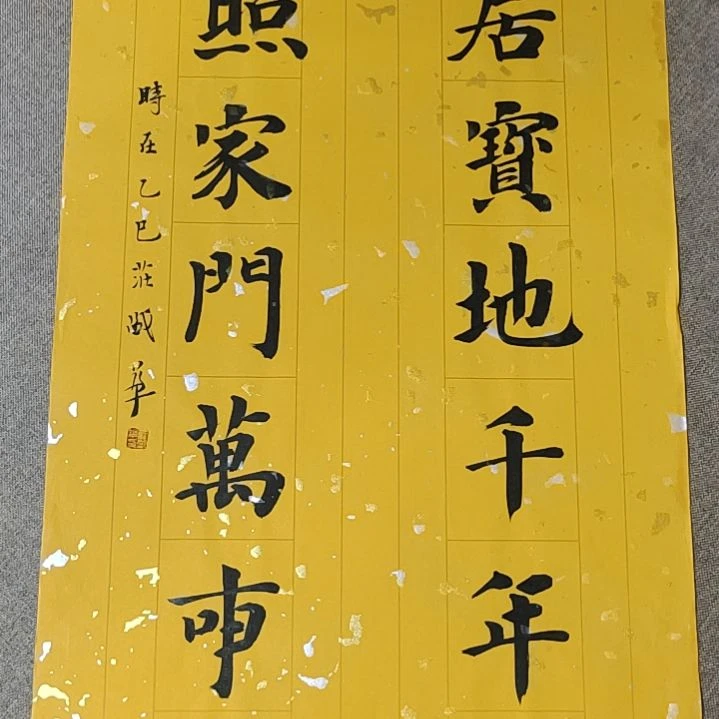 居寶地千年
照家門萬事
時在乙巳荘